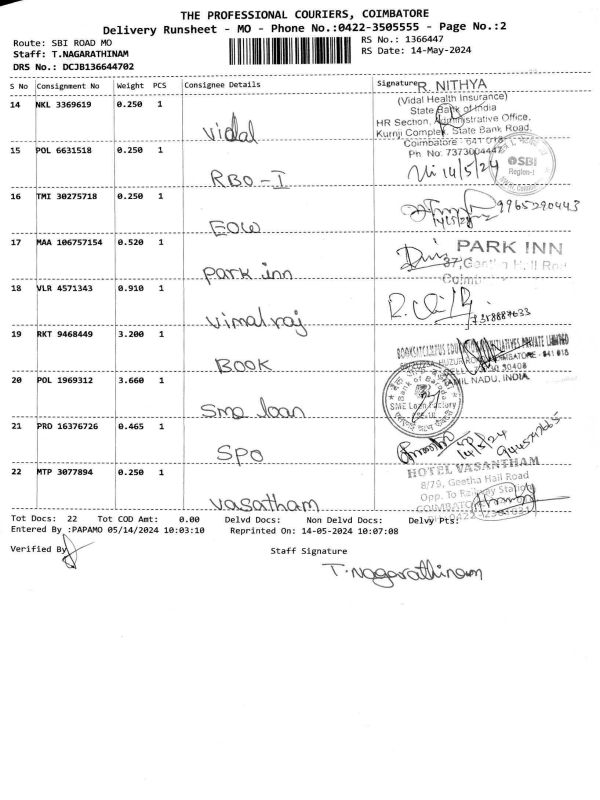 THE PROFESSIONAL COURIERS, COIMBATORE
Delivery Runsheet - MO - Phone No.:0422-3505555 - Page No.:2
Route: SBI ROAD MO
RS No.: 1366447
Staff: T.NAGARATHINAM
RS Date: 14-May-2024
DRS No.: DCJB136644702
S No Consignment No Weight PCS Consignee Details Signature
R. NITHYA
14 NKL 3369619 0.250 1
(Vidal Health Insurance)
State Bank of India
HR Section, Administrative Office,
Vidal
Kurnji Complex, State Bank Road,
Coimbatore - 641 018
15 POL 6631518 0.250 1
Ph. No: 7373004442
SBI
Region-I
RBO-I
14/5/24
16 TMI 30275718 0.250 1
9965290443
EOW
17 MAA 106757154 0.520 1
PARK INN
park inn
18 VLR 4571343 0.910 1
Vimalraj
19 RKT 9468449 3.200 1
BOOK
TAMIL NADU, INDIA
20 POL 1969312 3.660 1
Bank of Baroda
SME Loan Factory
Sme loan
21 PRO 16376726 0.465 1
14/5/24
SPO
22 MTP 3077894 0.250 1
HOTEL VASANTHAM
8/79, Geetha Hall Road
Opp. To Railway Station
vasatham
Tot Docs: 22 Tot COD Amt: 0.00 Delvd Docs: Non Delvd Docs: Delvy Pts:
Entered By :PAPAMO 05/14/2024 10:03:10 Reprinted On: 14-05-2024 10:07:08
Verified By
Staff Signature
T.Nagarathinam